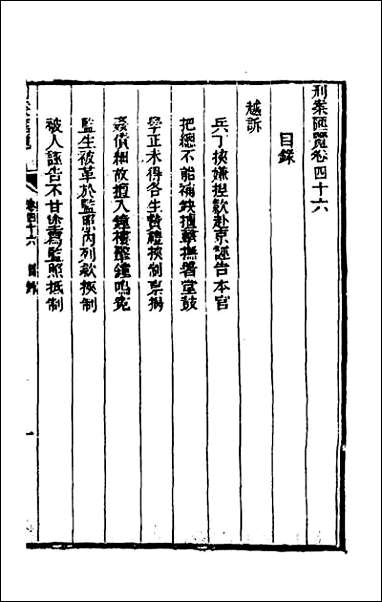 刑案匯覽卷四十六
目錄
越訴
兵丁挾嫌捏款赴京誣告本官
把總不能補缺擅擊撫署堂鼓
學正未得各生贄禮挾制票揭
姦債細故擅入鐘樓聲鐘鳴冤
監生被革於監照內列款挾制
被人誣告不甘塗寫監照抵制
卷四十六 目錄 一